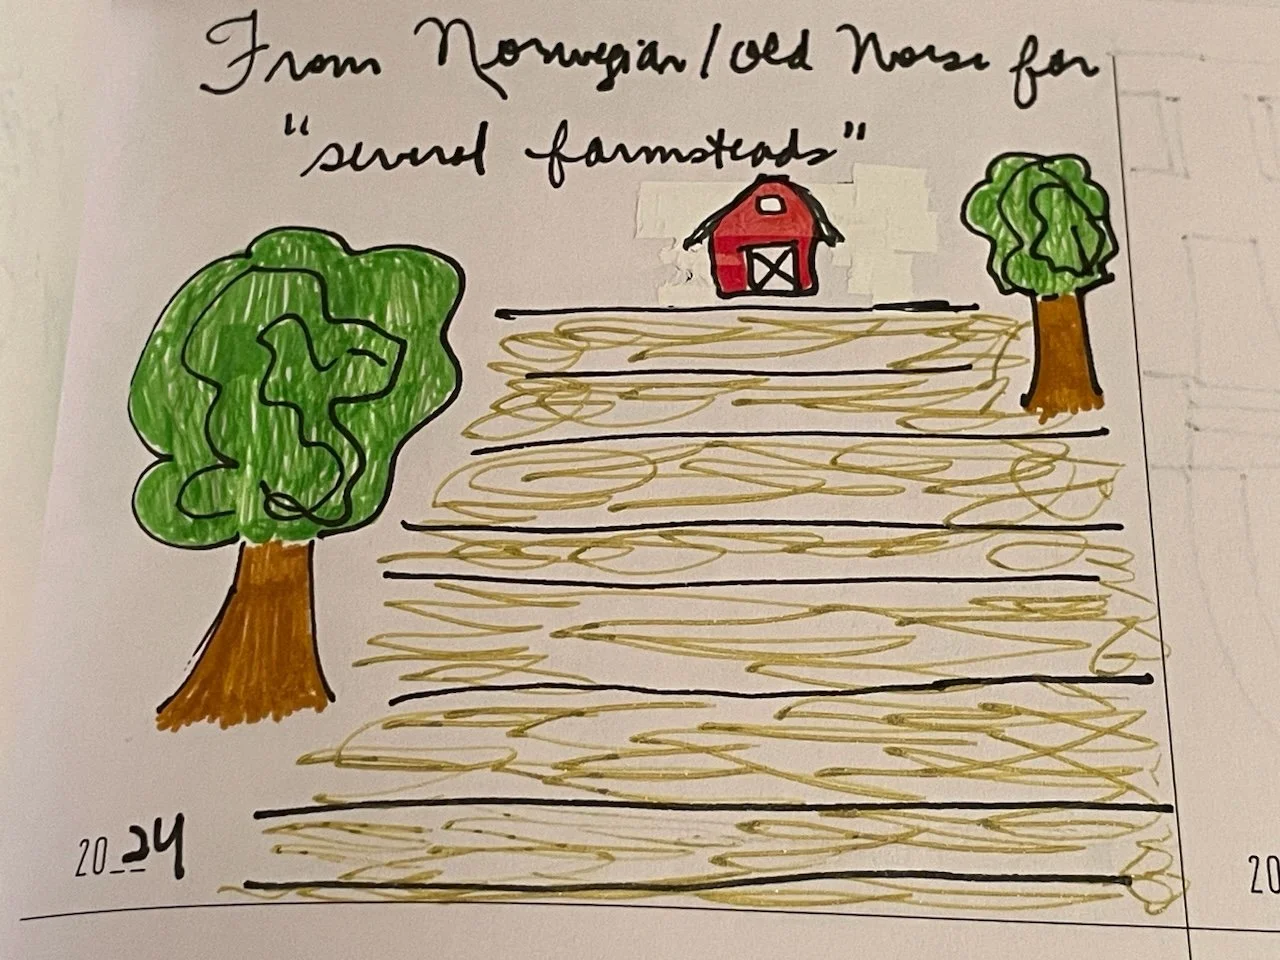 From Norwegian/Old Norse for
"several farmsteads"
2024
20